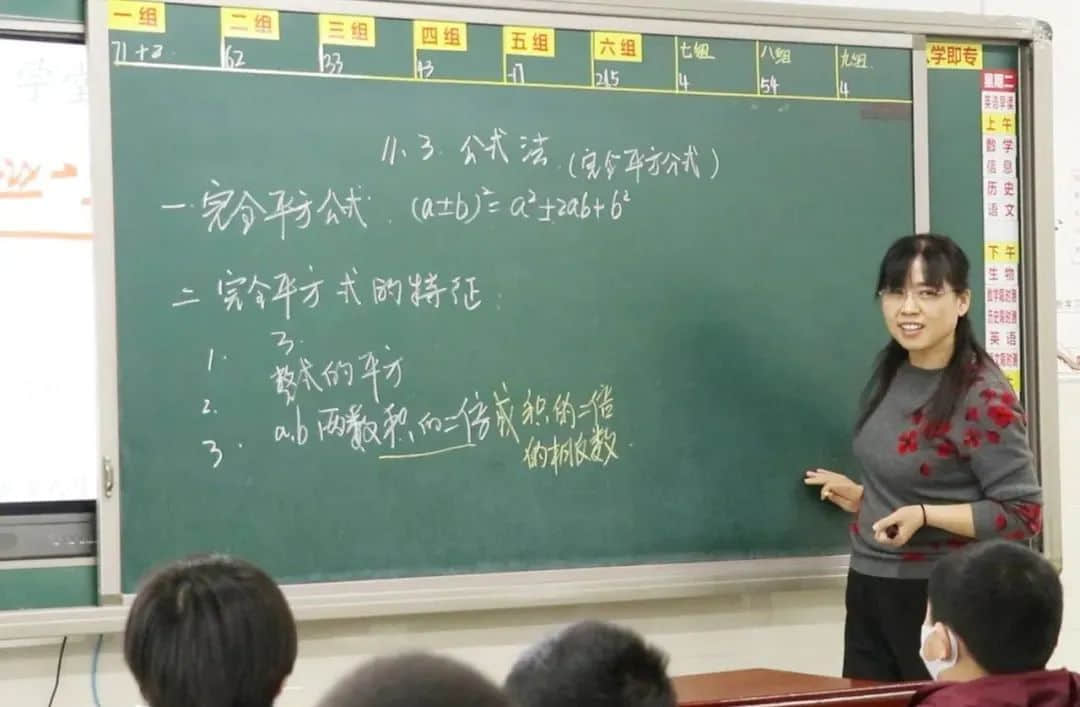 一组 二组 三组 四组 五组 六组 七组 八组 九组
71+2 62 33 43 -17 215 4 54 4
11.3. 公式法.(完全平方公式)
一.完全平方公式. (a±b)²=a²±2ab+b²
二 完全平方式的特征:
1. 3.
2. 数式的平方
3. a.b两数积的二倍或积的二倍
的相反数.
学即专
星期二
英语早读
上午
数学
信息
历史
语文
下午
生物
英语
学堂